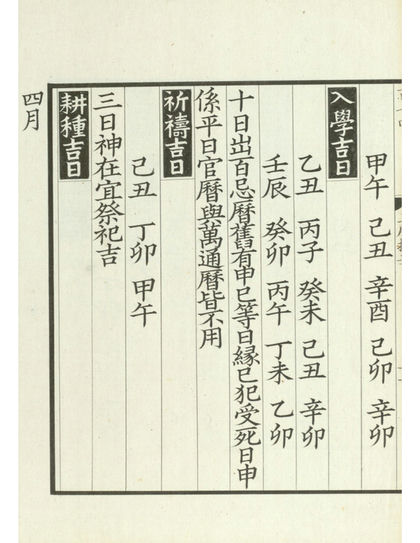 甲午 己丑 辛酉 己卯 辛卯
入學吉日
乙丑 丙子 癸未 己丑 辛卯
壬辰 癸卯 丙午 丁未 乙卯
十日出百忌曆舊有申巳等日緣巳犯受死日申
係平日官曆與萬通曆皆不用
祈禱吉日
己丑 丁卯 甲午
三日神在宜祭祀吉
耕種吉日
四月